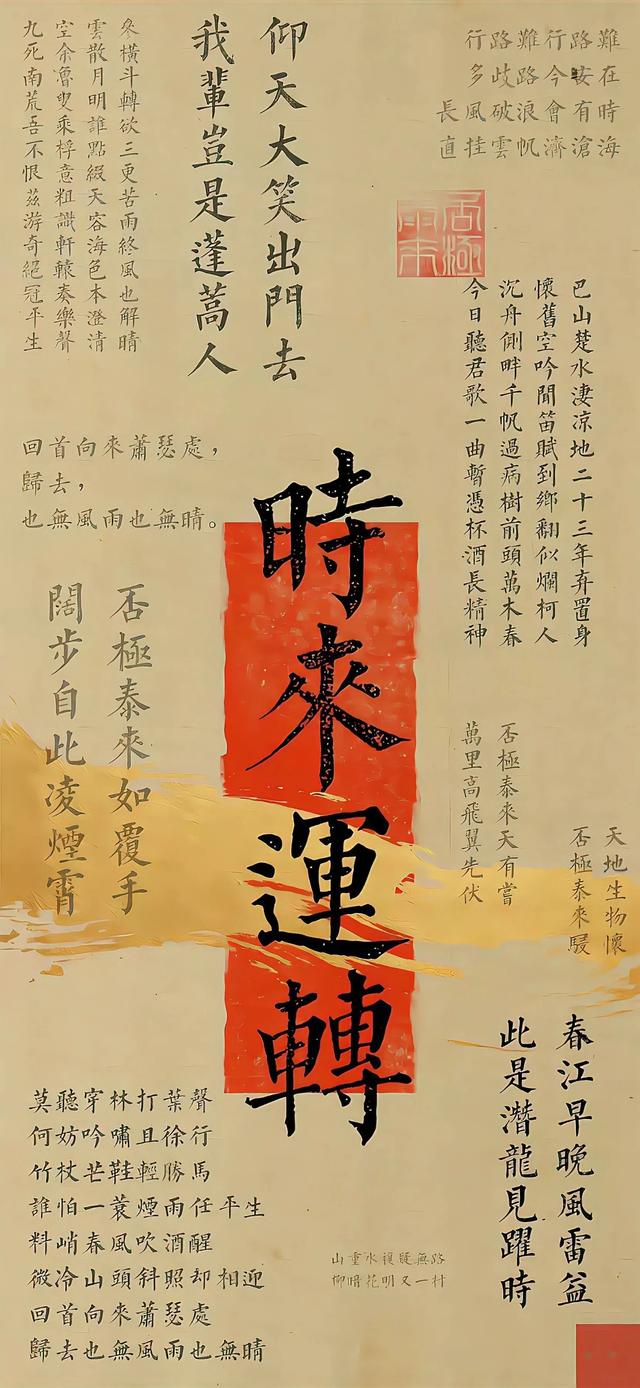 行路難行路難
多歧路今安在
長風破浪會有時
直挂雲帆濟滄海
仰天大笑出門去
我輩豈是蓬蒿人
參橫斗轉欲三更苦雨終風也解晴
雲散月明誰點綴天容海色本澄清
空余魯叟乘桴意粗識軒轅奏樂聲
九死南荒吾不恨茲游奇絕冠平生
巴山楚水淒涼地二十三年弃置身
懷舊空吟聞笛賦到鄉翻似爛柯人
沉舟側畔千帆過病樹前頭萬木春
今日聽君歌一曲暫憑杯酒長精神
回首向來蕭瑟處，
歸去，
也無風雨也無晴。
時來運轉
否極泰來如覆手
闊步自此凌煙霄
否極泰來天有嘗
萬里高飛翼先伏
天地生物懷
否極泰來
春江早晚風雷益
此是潛龍見躍時
莫聽穿林打葉聲
何妨吟嘯且徐行
竹杖芒鞋輕勝馬
誰怕一蓑煙雨任平生
料峭春風吹酒醒
微冷山頭斜照却相迎
回首向來蕭瑟處
歸去也無風雨也無晴
山重水複疑無路
柳暗花明又一村